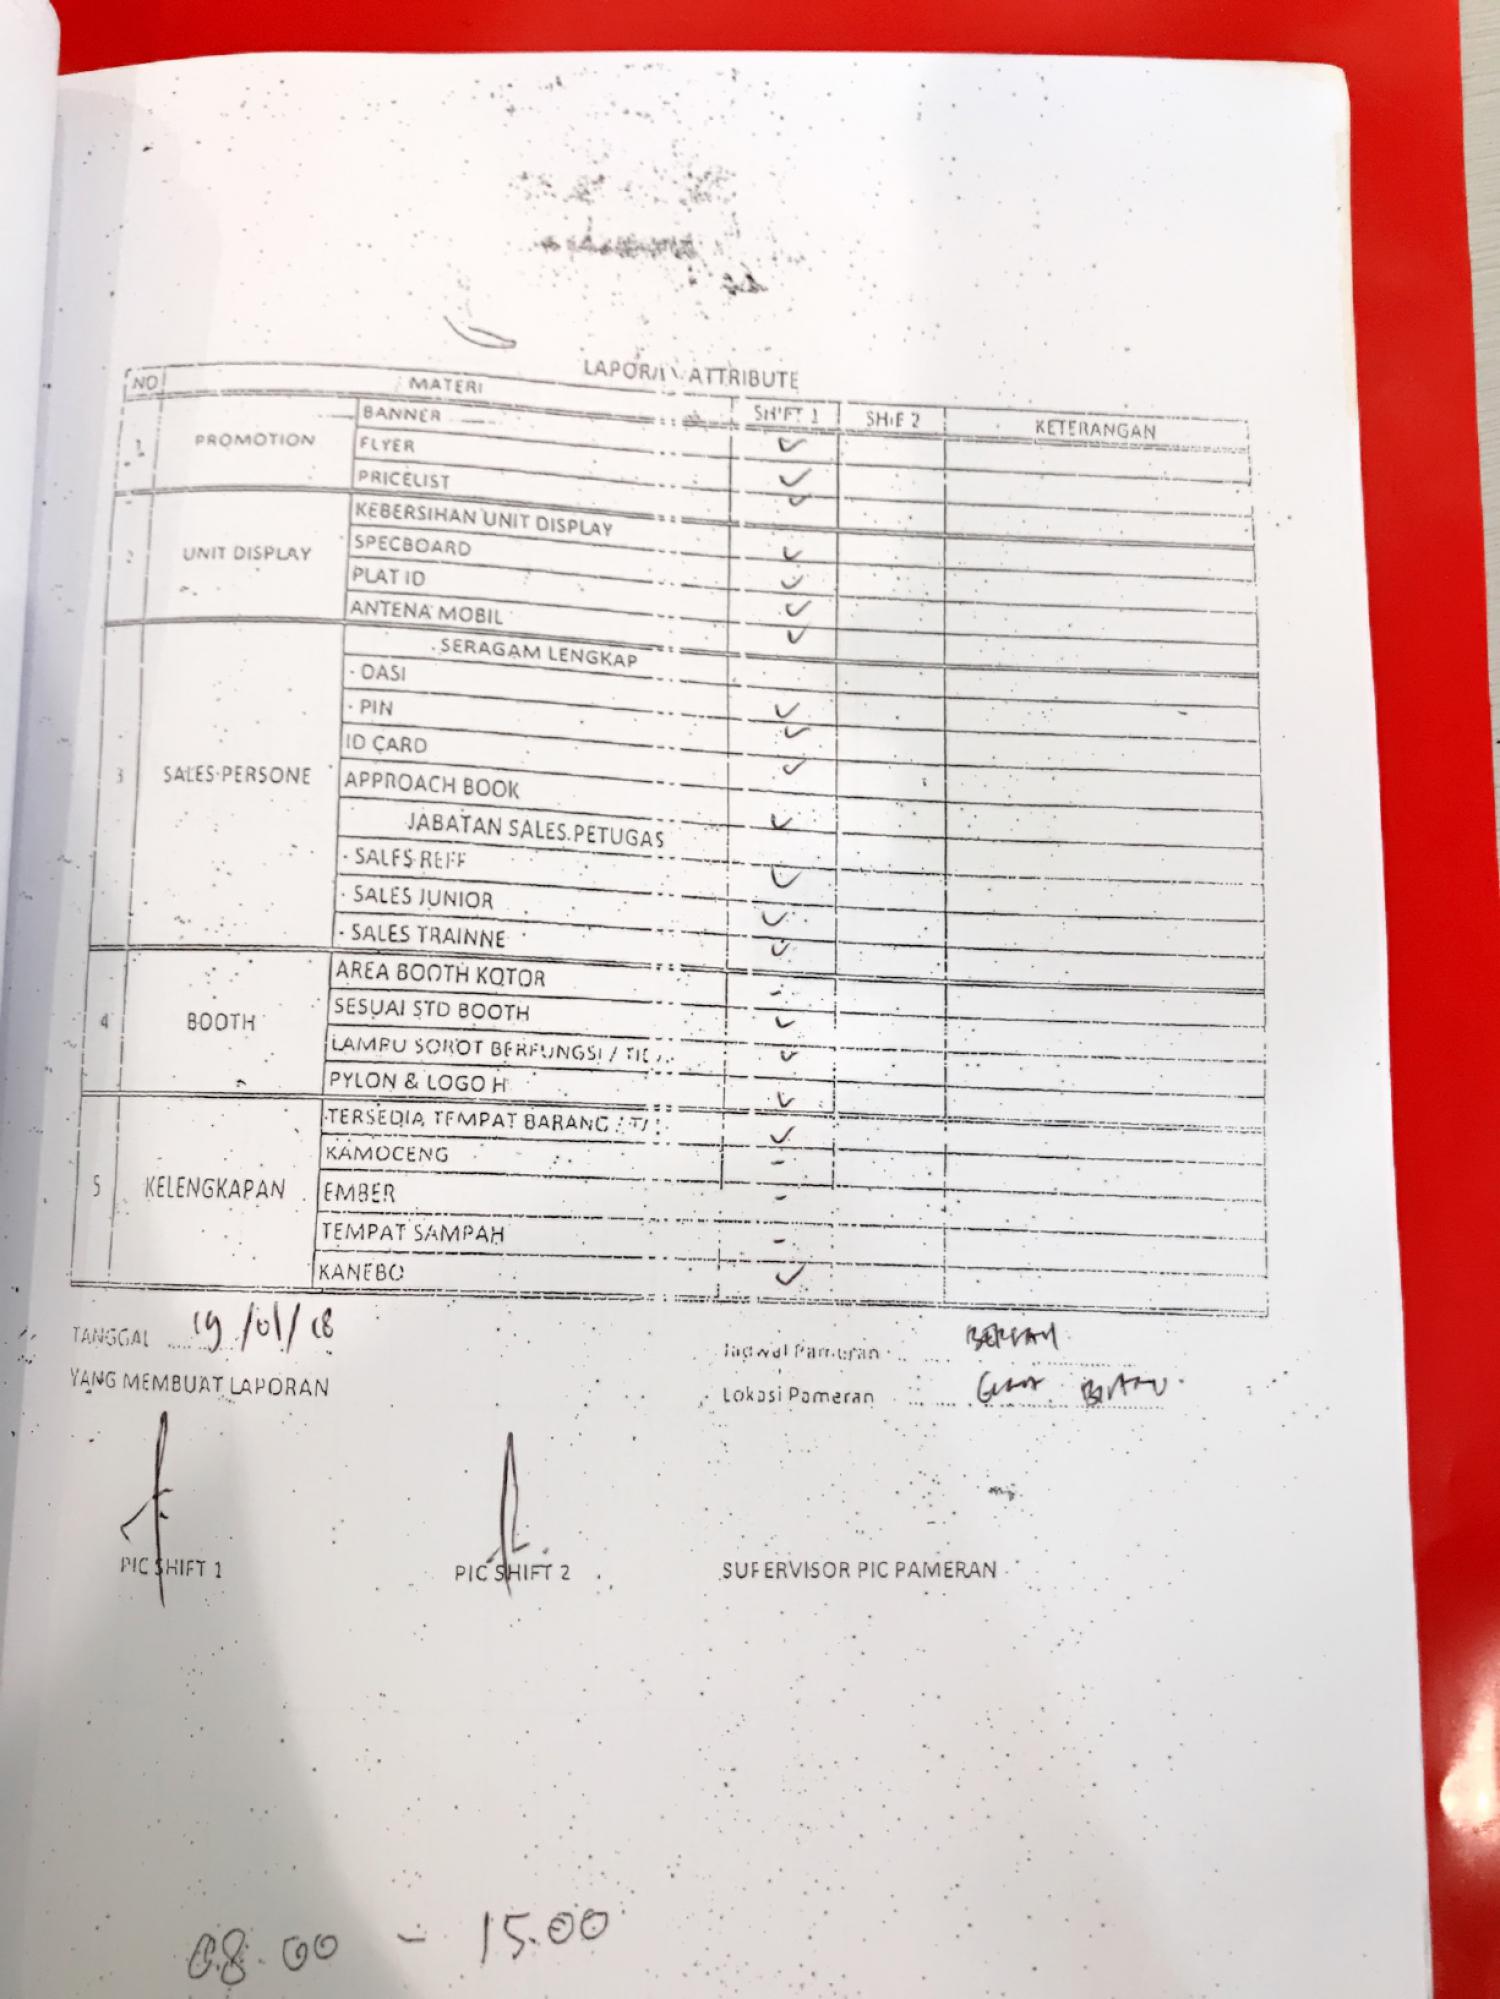 LAPORAN ATTRIBUTE
NO MATERI SHIFT 1 SHIF 2 KETERANGAN
1 PROMOTION BANNER ✓
FLYER ✓
PRICELIST ✓
2 UNIT DISPLAY KEBERSIHAN UNIT DISPLAY ✓
SPECBOARD ✓
PLAT ID ✓
ANTENA MOBIL ✓
3 SALES PERSONE SERAGAM LENGKAP
- DASI ✓
- PIN ✓
ID CARD ✓
APPROACH BOOK ✓
JABATAN SALES PETUGAS
- SALES REFF ✓
- SALES JUNIOR ✓
- SALES TRAINNE ✓
4 BOOTH AREA BOOTH KOTOR -
SESUAI STD BOOTH ✓
LAMPU SOROT BERFUNGSI / ✓
PYLON & LOGO H ✓
5 KELENGKAPAN TERSEDIA TEMPAT BARANG ✓
KAMOCENG -
EMBER -
TEMPAT SAMPAH -
KANEBO ✓
TANGGAL 19/01/18
Jadwal Pameran
YANG MEMBUAT LAPORAN
Lokasi Pameran
PIC SHIFT 1 PIC SHIFT 2 SUPERVISOR PIC PAMERAN
08.00 - 15.00